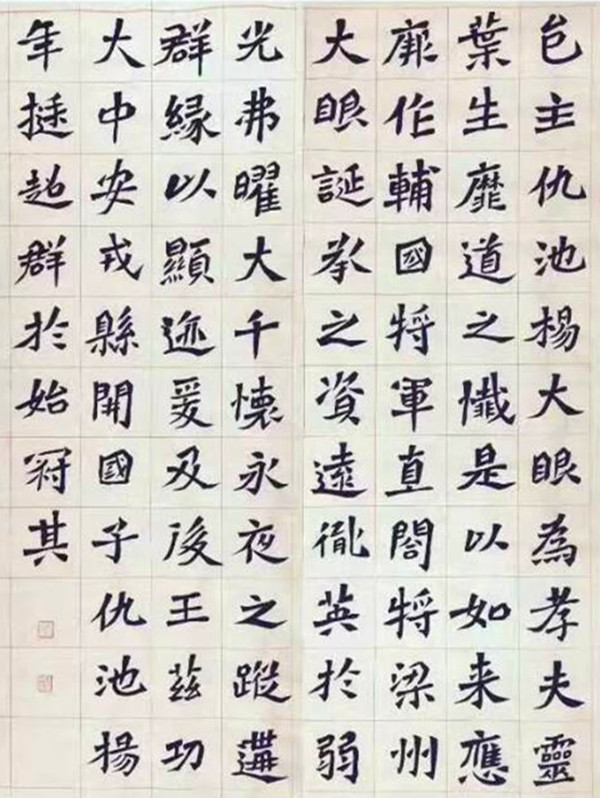 邑主仇池楊大眼為孝夫靈
葉生靡道之懺是以如来應
厥作輔國将軍直閤将梁州
大眼誕承之資遠胤英於弱
光弗曜大千懷永夜之蹤遘
群緣以顯迹爰及後王茲功
大中安戎縣開國子仇池楊
年挺超群於始冠其